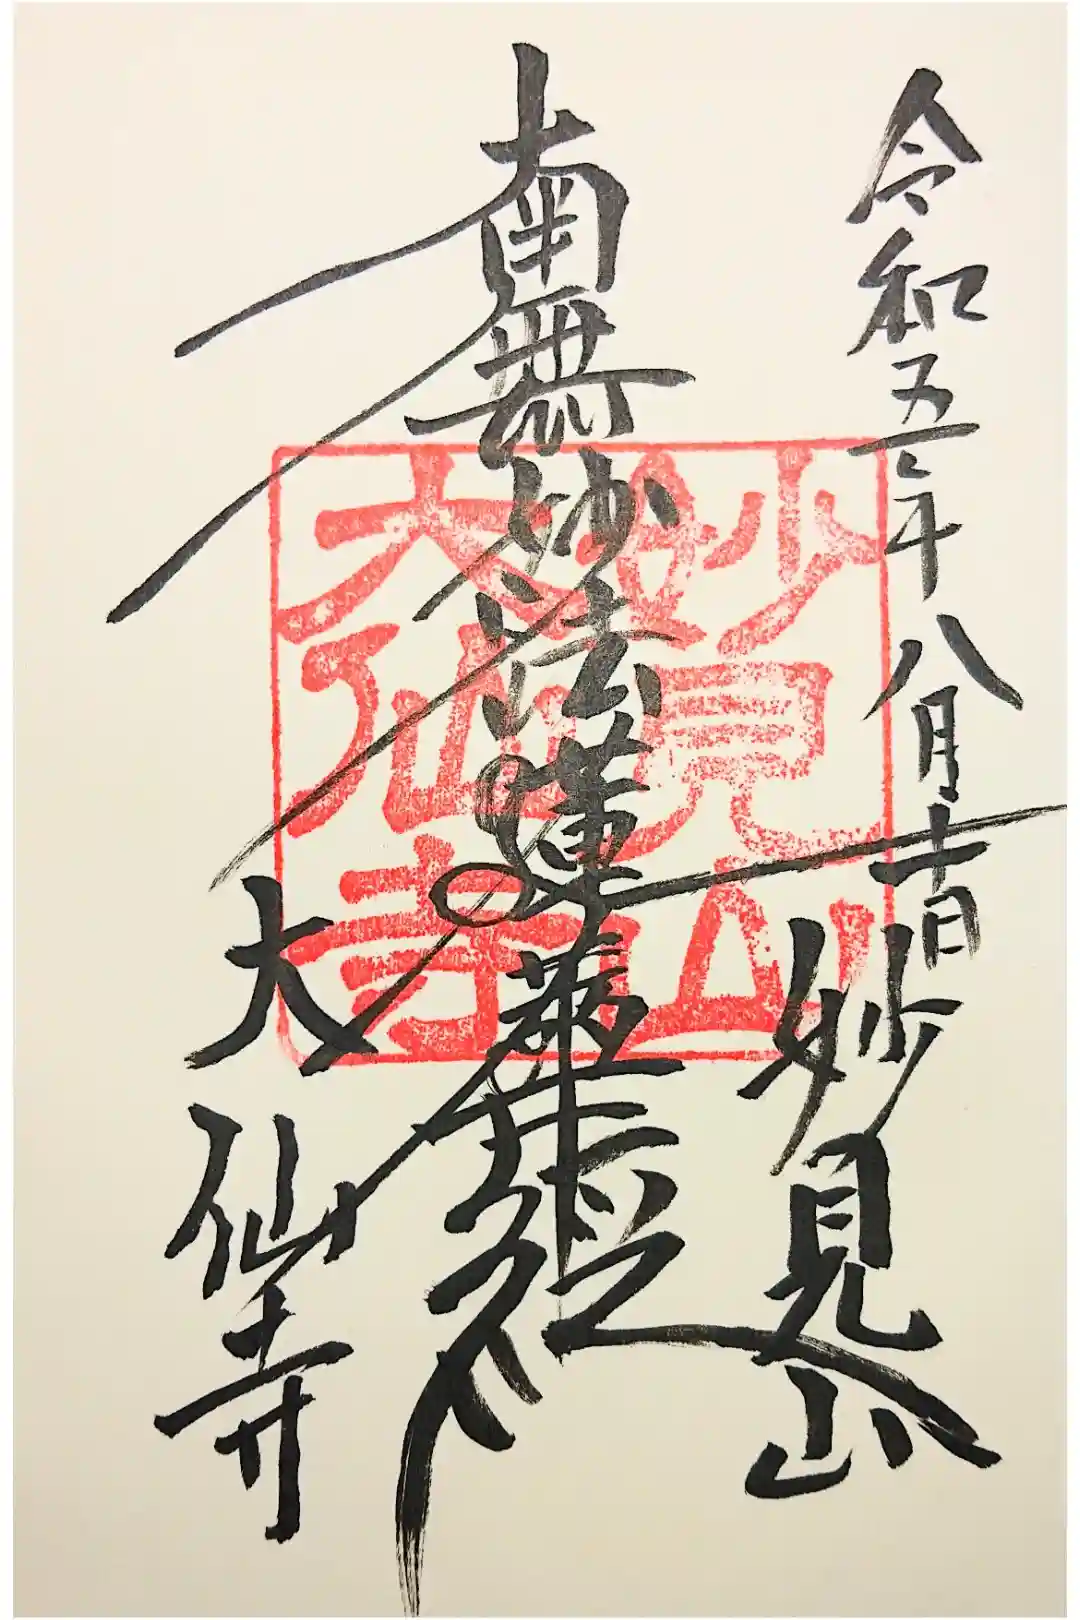 令和五年八月十日
妙見山
南無妙法蓮華経
大仙寺
妙見山
大仙寺